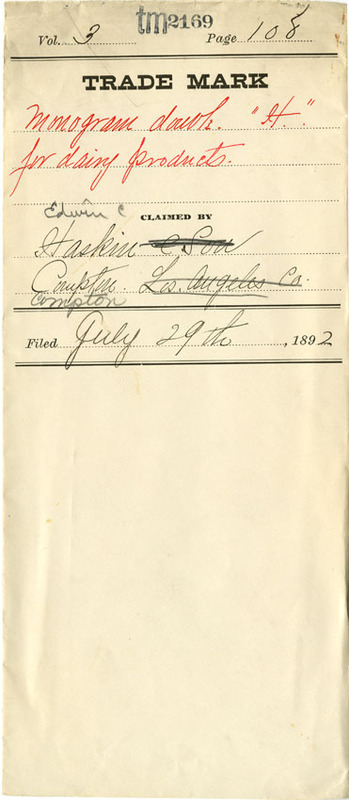 tm2169
Vol. 3 Page 108
TRADE MARK
Monogram double "H."
for dairy products.
Edwin C
CLAIMED BY
Haskin & Son
Compton Los Angeles Co.
Compton
Filed July 29th, 1892